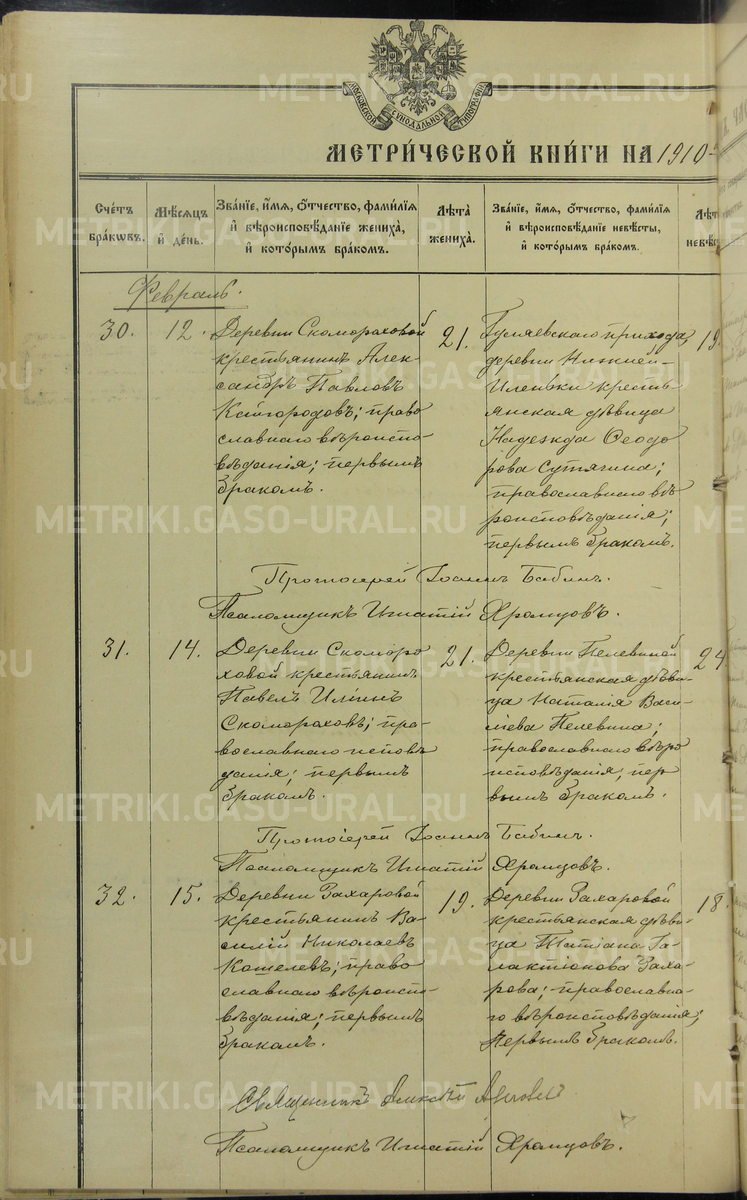 МОСКОВСКОЙ СѴНОДАЛЬНОЙ ТИПОГРАФІИ
МЕТРИ́ЧЕСКОЙ КНИ́ГИ НА 1910
Сче́тъ бра́кωвъ.
Мѣ́сѧцъ и҆ де́нь.
Зва́нїе, и҆́мѧ, ѻ҆́тчество, фамі́лїѧ и҆ вѣроисповѣ́данїе жениха̀, и҆ кото́рымъ бра́комъ.
Лѣта̀ жениха̀.
Зва́нїе, и҆́мѧ, ѻ҆́тчество, фамі́лїѧ и҆ вѣроисповѣ́данїе невѣ́сты, и҆ кото́рымъ бра́комъ.
Лѣт
невѣ́с
Февраль.
30.
12.
Деревни Скомораховой
крестьянинъ Алек-
сандръ Павловъ
Кайгородовъ; право
славнаго вѣроиспо-
вѣданія; первымъ
бракомъ.
21.
Гуляевскаго прихода,
деревни Нижней-
Иленьки кресть
янская дѣвица
Надежда Ѳеодо
рова Сутягина;
православнаго вѣ
роисповѣданія;
первымъ бракомъ.
19.
Протоіерей Іоаннъ Бабинъ.
Псаломщикъ Игнатій Храмцовъ.
31.
14.
Деревни Скоморо
ховой крестьянинъ
Павелъ Ильинъ
Скомораховъ; пра-
вославнаго исповѣ
данія; первымъ
бракомъ.
21.
Деревни Пелевиной
крестьянская дѣви-
ца Наталія Васи-
льева Пелевина;
православнаго вѣро
исповѣданія, пер
вымъ бракомъ.
24.
Протоіерей Іоаннъ Бабинъ.
Псаломщикъ Игнатій Храмцовъ.
32.
15.
Деревни Захаровой
крестьянинъ Ва-
силій Николаевъ
Кошелевъ; право
славнаго вѣроиспо-
вѣданія; первымъ
бракомъ.
19.
Деревни Захаровой
крестьянская дѣви-
ца Татіана Га-
лактіонова Заха-
рова; православна-
го вѣроисповѣданія;
первымъ бракомъ.
18.
Священникъ Алексѣй
Псаломщикъ Игнатій Храмцовъ.
METRIKI.GASO-URAL.RU